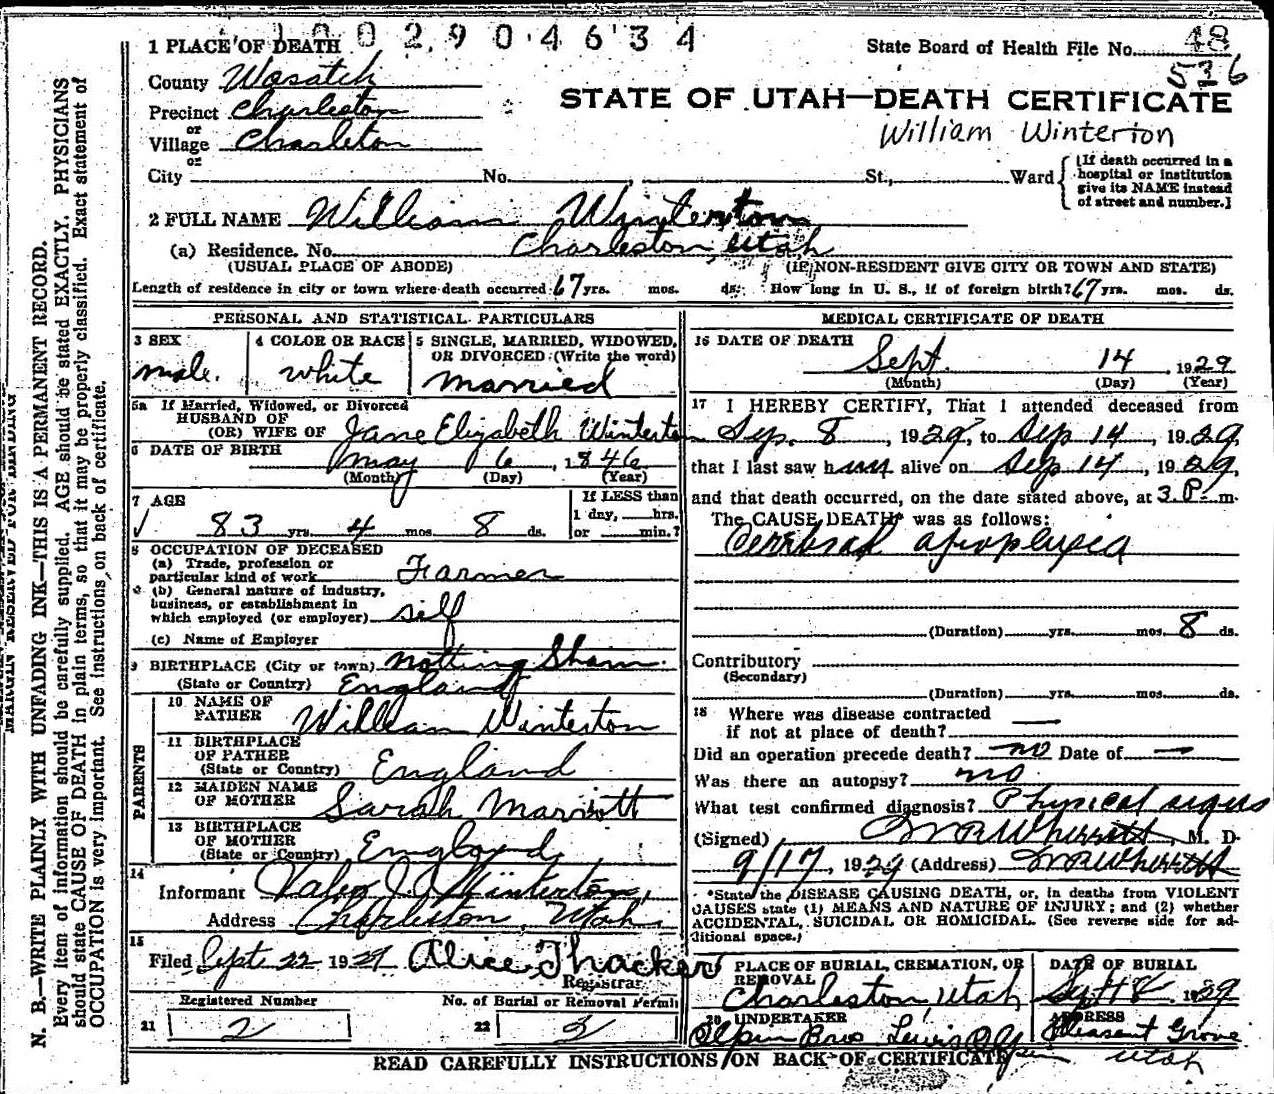 1 0 0 2 9 0 4 6 3 4
1 PLACE OF DEATH
State Board of Health File No. 48
536
County Wasatch
Precinct Charleston
or
Village Charleton
or
STATE OF UTAH—DEATH CERTIFICATE
William Winterton
City No. St., Ward
(If death occurred in a
hospital or institution
give its NAME instead
of street and number.)
2 FULL NAME William Winterton
(a) Residence. No. Charleston, Utah
(USUAL PLACE OF ABODE) (IF NON-RESIDENT GIVE CITY OR TOWN AND STATE)
Length of residence in city or town where death occurred 67 yrs. mos. ds. How long in U. S., if of foreign birth? 67 yrs. mos. ds.
PERSONAL AND STATISTICAL PARTICULARS
3 SEX
male.
4 COLOR OR RACE
white
5 SINGLE, MARRIED, WIDOWED,
OR DIVORCED (Write the word)
married
5a If Married, Widowed, or Divorced
HUSBAND OF
(OR) WIFE OF Jane Elizabeth Winterton
6 DATE OF BIRTH
May 6, 1846
(Month) (Day) (Year)
7 AGE
83 yrs. 4 mos. 8 ds.
If LESS than
1 day, hrs.
or min.?
8 OCCUPATION OF DECEASED
(a) Trade, profession or
particular kind of work Farmer
(b) General nature of industry,
business, or establishment in
which employed (or employer) self
(c) Name of Employer
9 BIRTHPLACE (City or town) Notting Sham
(State or Country) England
PARENTS
10 NAME OF
FATHER William Winterton
11 BIRTHPLACE
OF FATHER
(State or Country) England
12 MAIDEN NAME
OF MOTHER Sarah Marriott
13 BIRTHPLACE
OF MOTHER
(State or Country) England
14
Informant Valeo J. Winterton,
Address Charleston, Utah
15
Filed Sept 22 1929 Alice Thacker
Registrar
Registered Number
21 2
No. of Burial or Removal Permit
22 3
MEDICAL CERTIFICATE OF DEATH
16 DATE OF DEATH
Sept. 14, 1929
(Month) (Day) (Year)
17 I HEREBY CERTIFY, That I attended deceased from
Sep. 8, 1929, to Sep 14, 1929,
that I last saw him alive on Sep 14, 1929,
and that death occurred, on the date stated above, at 3 P. m.
The CAUSE DEATH* was as follows:
Cerebral apoplexia
(Duration) yrs. mos. 8 ds.
Contributory
(Secondary)
(Duration) yrs. mos. ds.
18 Where was disease contracted
if not at place of death?
Did an operation precede death? no Date of
Was there an autopsy? no
What test confirmed diagnosis? Physical signs
(Signed) W R Wherritt, M. D.
9/17, 1929 (Address) W R Wherritt
*State the DISEASE CAUSING DEATH, or, in deaths from VIOLENT
CAUSES state (1) MEANS AND NATURE OF INJURY; and (2) whether
ACCIDENTAL, SUICIDAL OR HOMICIDAL. (See reverse side for ad-
ditional space.)
PLACE OF BURIAL, CREMATION, OR
REMOVAL
Charleston, Utah
DATE OF BURIAL
Sept 18 1929
20 UNDERTAKER
Olpin Bros Lewis
ADDRESS
Pleasant Grove
Utah
READ CAREFULLY INSTRUCTIONS ON BACK OF CERTIFICATE
MARGIN RESERVED FOR BINDING
N. B.—WRITE PLAINLY WITH UNFADING INK—THIS IS A PERMANENT RECORD.
Every item of information should be carefully supplied. AGE should be stated EXACTLY. PHYSICIANS
should state CAUSE OF DEATH in plain terms, so that it may be properly classified. Exact statement of
OCCUPATION is very important. See instructions on back of certificate.